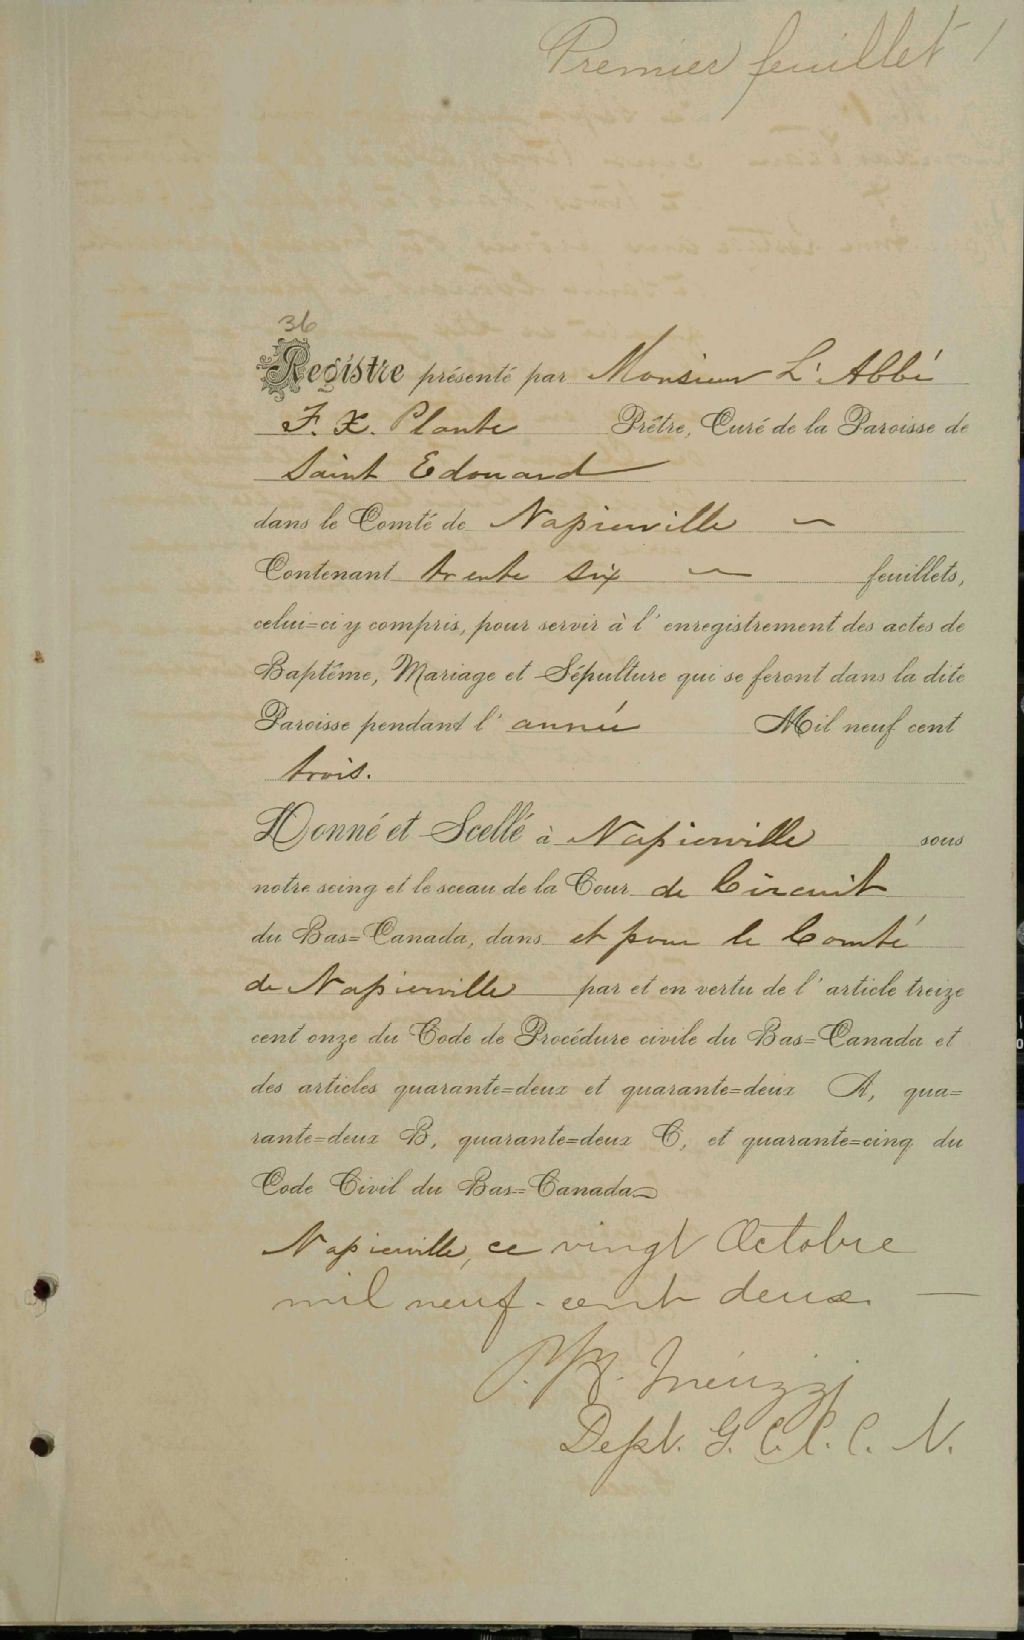 Premier feuillet 1
36
Registre présenté par Monsieur L'Abbé
F. X. Plante Prêtre, Curé de la Paroisse de
Saint Edouard
dans le Comté de Napierville
Contenant trente six feuillets,
celui=ci y compris, pour servir à l'enregistrement des actes de
Baptême, Mariage et Sépulture qui se feront dans la dite
Paroisse pendant l'année Mil neuf cent
trois.
Donné et Scellé à Napierville sous
notre seing et le sceau de la Cour de Circuit
du Bas=Canada, dans et pour le Comté
de Napierville par et en vertu de l'article treize
cent onze du Code de Procédure civile du Bas=Canada et
des articles quarante=deux et quarante=deux A, qua=
rante=deux B, quarante=deux C, et quarante=cinq du
Code Civil du Bas=Canada
Napierville, ce vingt Octobre
mil neuf-cent deux.
Dept. G. C. C. C. N.